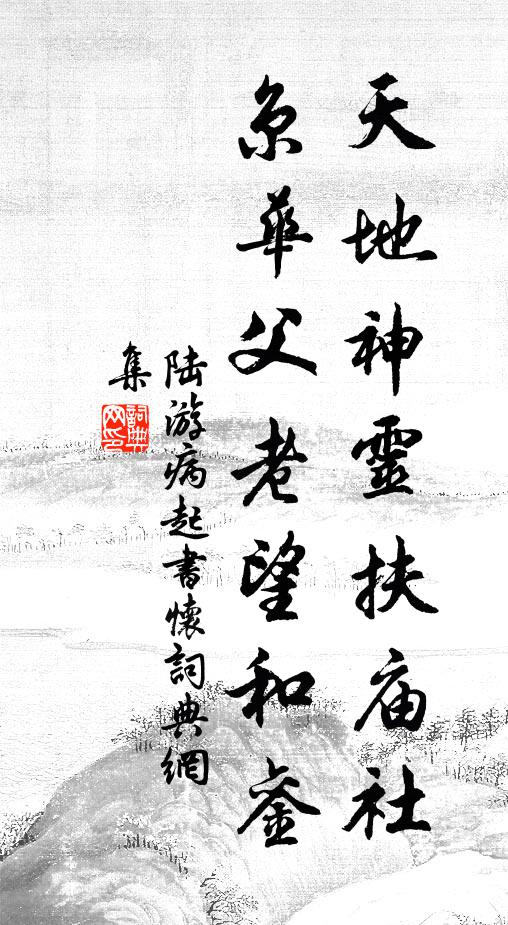 天地神靈扶庙社
京華父老望和銮
陆游病起書懷詞典網
集
詞典
网印